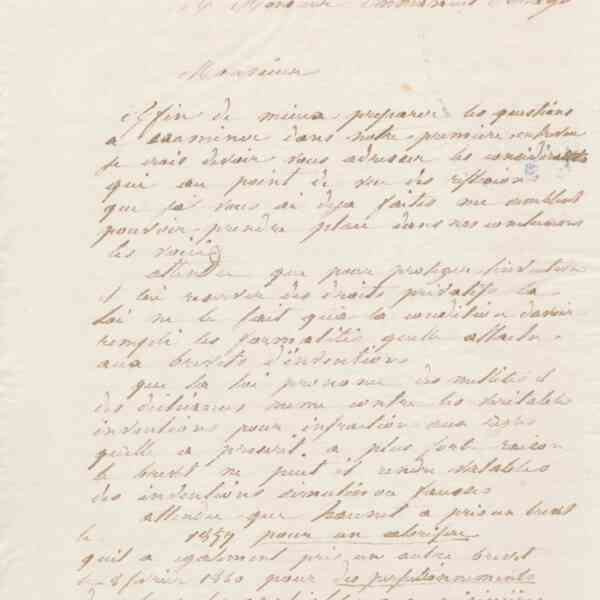 Monsieur
Afin de mieux preparer les questions
a examiner dans notre premiere entrevue
je crois devoir vous adresser les considérants
qui au point de vue des
que je vous ai deja faites me semblent
pouvoir prendre place dans nos conclusions
les voici
attendu que pour proteger l'invention
et lui reserver des droits privatifs la
Loi ne le fait qu'a la condition d'avoir
rempli les formalités quelle attache
aux brevets d'inventions
que la loi prononce des nullités et
des déchéances meme contre les véritables
inventions pour infraction aux règles
quelle a prescrit. a plus forte raison
le brevet ne peut il rendre valables
des inventions simulées ou fausses
attendu que a pris un brevet
le 1859 pour un calorifere
quil a egalement pris un autre brevet
le 8 fevrier 1860 pour des perfectionnements